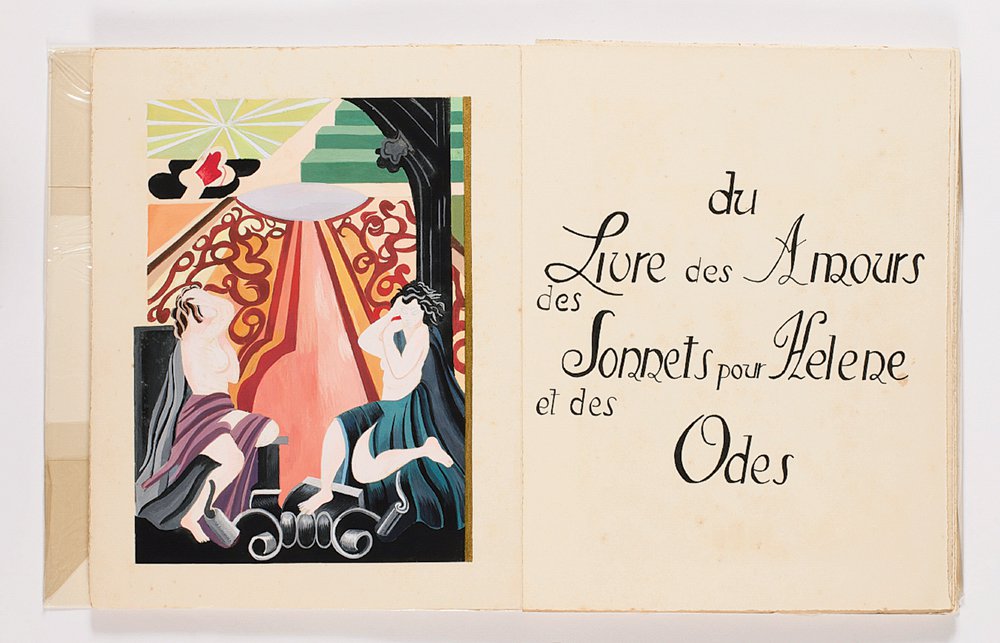 du
Livre des Amours
des
Sonnets pour Helene
et des
Odes